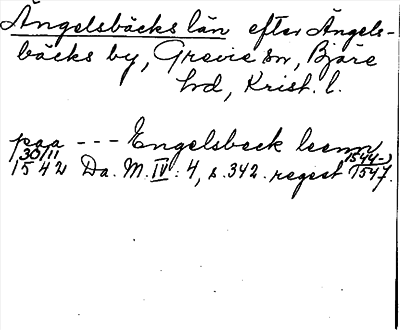 Ängelsbäcks län efter Ängels-
bäcks by, Grevie sn, Bjäre
hd, Krist. l.
paa --- Engelsbeck leenn
30/11 1544-)
1542 Da. M. IV: 4, s. 342. regest 1547.